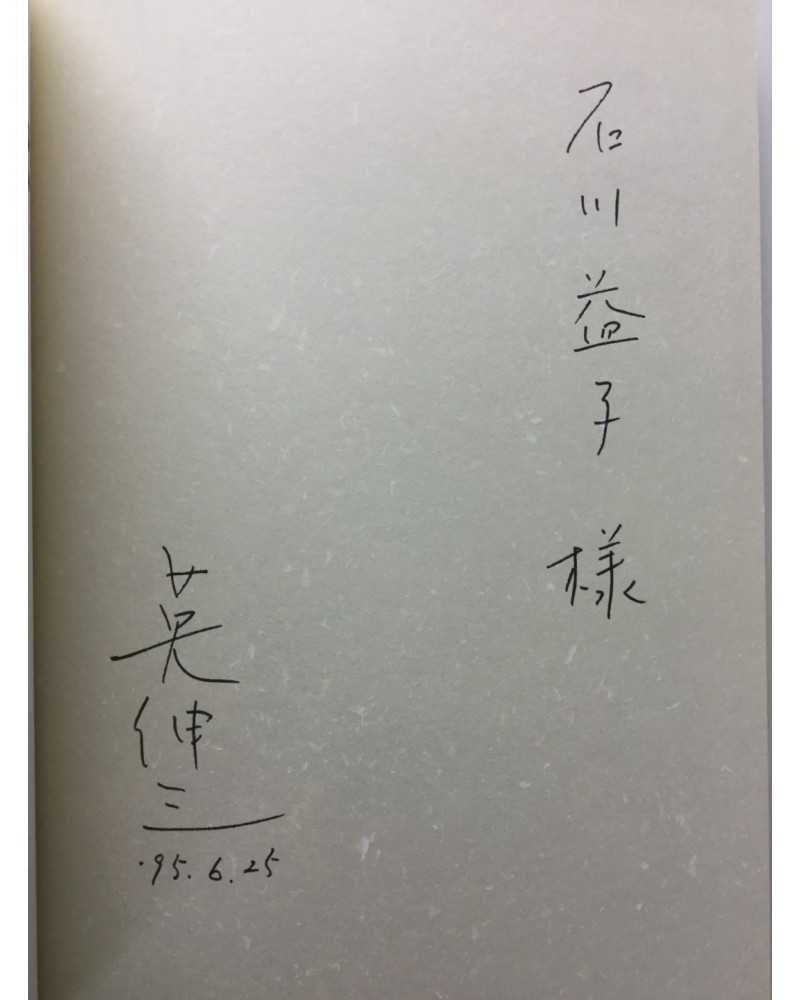 石川益子様
英伸三
'95.6.25